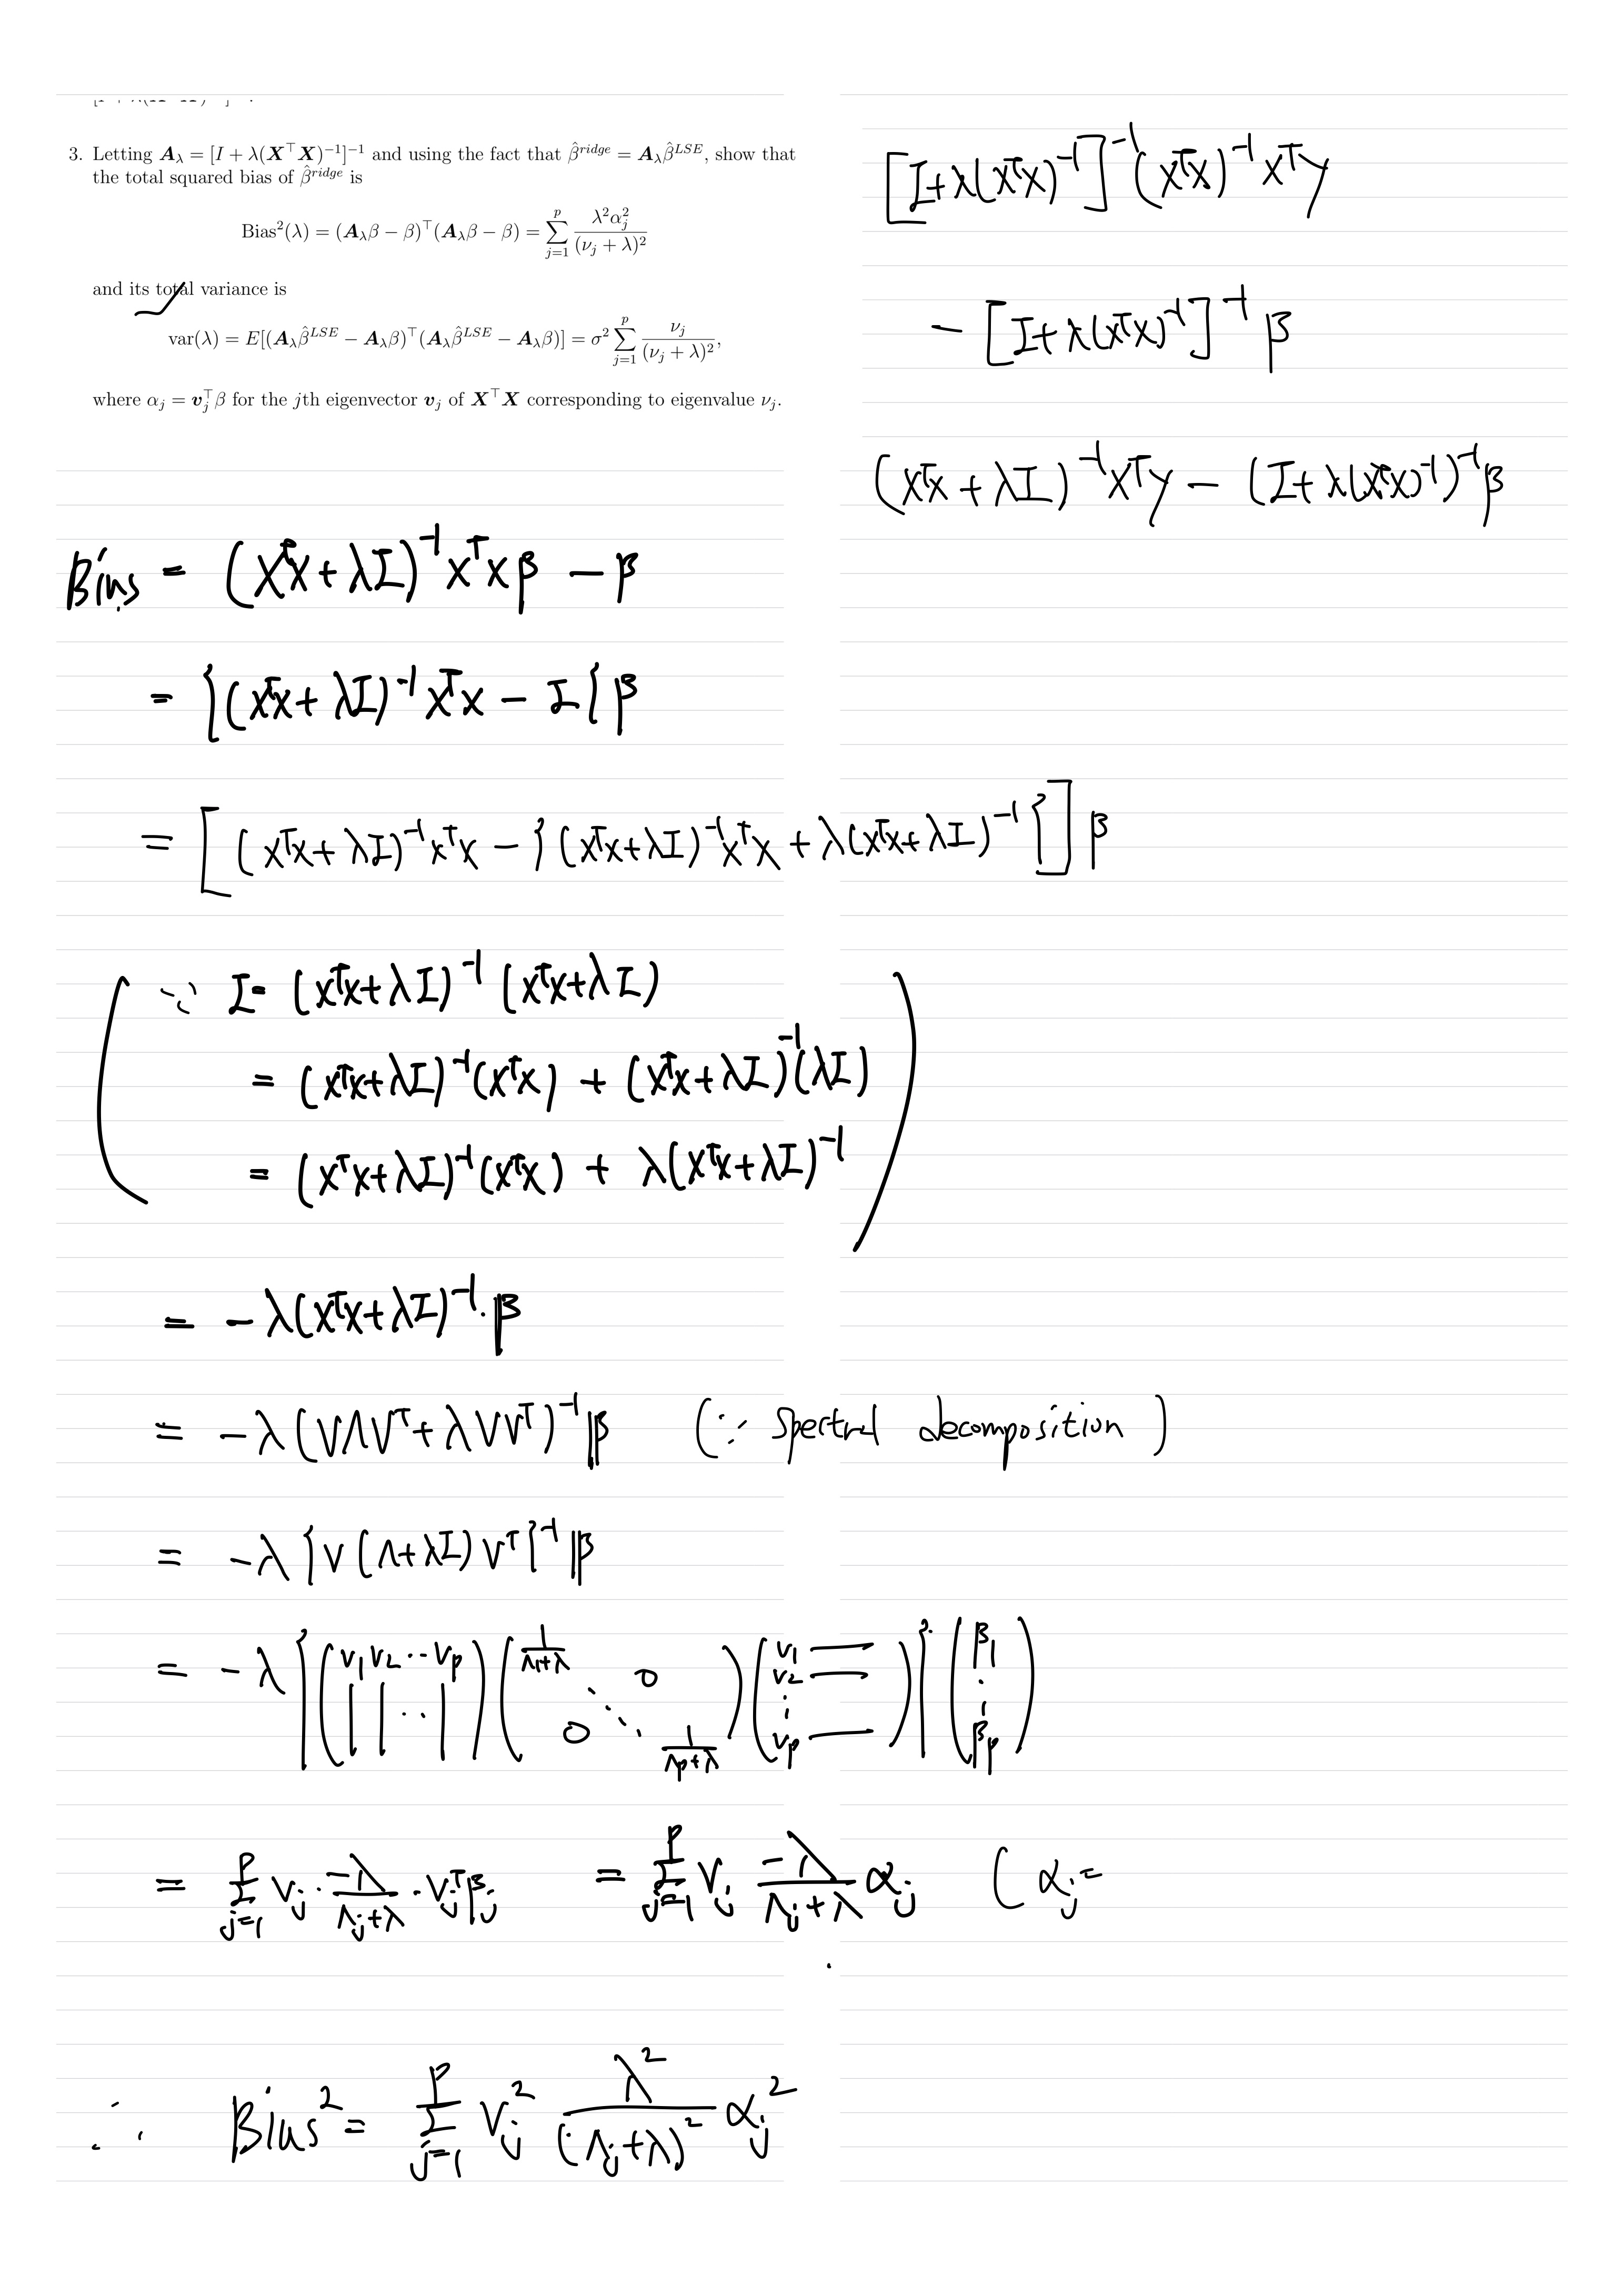 3. Letting A_λ = [I + λ(X^⊤X)^{-1}]^{-1} and using the fact that β̂^{ridge} = A_λβ̂^{LSE}, show that
the total squared bias of β̂^{ridge} is
Bias²(λ) = (A_λβ − β)^⊤(A_λβ − β) = ∑_{j=1}^{p} λ²α_j² / (ν_j + λ)²
and its total variance is
var(λ) = E[(A_λβ̂^{LSE} − A_λβ)^⊤(A_λβ̂^{LSE} − A_λβ)] = σ² ∑_{j=1}^{p} ν_j / (ν_j + λ)²,
where α_j = v_j^⊤β for the jth eigenvector v_j of X^⊤X corresponding to eigenvalue ν_j.
Bias = (X^TX + λI)^{-1} X^TXβ − β
= {(X^TX + λI)^{-1} X^TX − I} β
= [(X^TX + λI)^{-1} X^TX − {(X^TX + λI)^{-1} X^TX + λ(X^TX + λI)^{-1}}] β
(∵ I = (X^TX + λI)^{-1} (X^TX + λI)
= (X^TX + λI)^{-1}(X^TX) + (X^TX + λI)^{-1}(λI)
= (X^TX + λI)^{-1}(X^TX) + λ(X^TX + λI)^{-1})
= −λ(X^TX + λI)^{-1} · β
= −λ(VΛV^T + λVV^T)^{-1} β (∵ Spectral decomposition)
= −λ{V(Λ + λI)V^T}^{-1} β
= −λ{(v_1 v_2 ⋯ v_p) (1/(Λ_1+λ) 0 ⋱ 0 1/(Λ_p+λ)) (v_1 v_2 ⋮ v_p)} · (β_1 ⋮ β_p)
= ∑_{j=1}^{p} v_j · −λ/(Λ_j+λ) · v_j^Tβ_j = ∑_{j=1}^{p} v_j −λ/(Λ_j+λ) α_j (α_j =
∴ Bias² = ∑_{j=1}^{p} v_j² λ²/(Λ_j+λ)² α_j²
[I + λ(X^TX)^{-1}]^{-1} (X^TX)^{-1} X^Ty
− [I + λ(X^TX)^{-1}]^{-1} β
(X^TX + λI)^{-1} X^Ty − (I + λ(X^TX)^{-1})^{-1} β